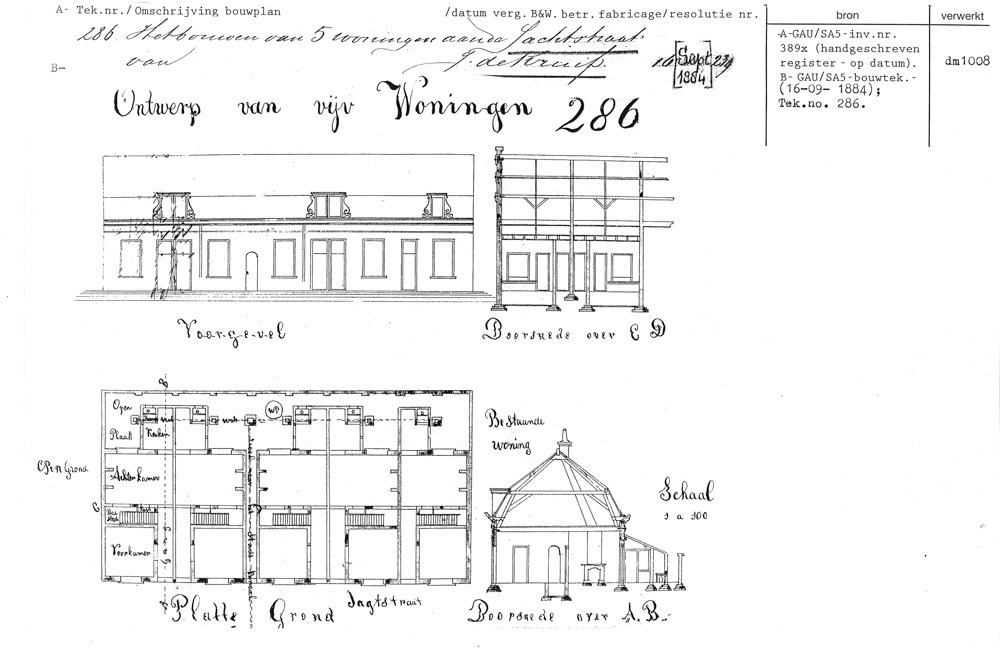 A- Tek.nr./Omschrijving bouwplan /datum verg. B&W. betr. fabricage/resolutie nr.
286 Het bouwen van 5 woningen aan de Jachtstraat
van J. de Kruif 16 Sept 1884
B-
bron
verwerkt
-A-GAU/SA5-inv.nr.
389x (handgeschreven
register - op datum).
B- GAU/SA5-bouwtek.-
(16-09- 1884);
Tek.no. 286.
dm1008
Ontwerp van vijv Woningen 286
Voorgevel
Doorsnede over C D
B
Open
Plaats
Keuken
WP
Achterkamer
Voorkamer
C
Gang
Platte Grond
Jagtstraat
Bestaande
woning
Schaal
1 a 100
Doorsnede over A.B.-